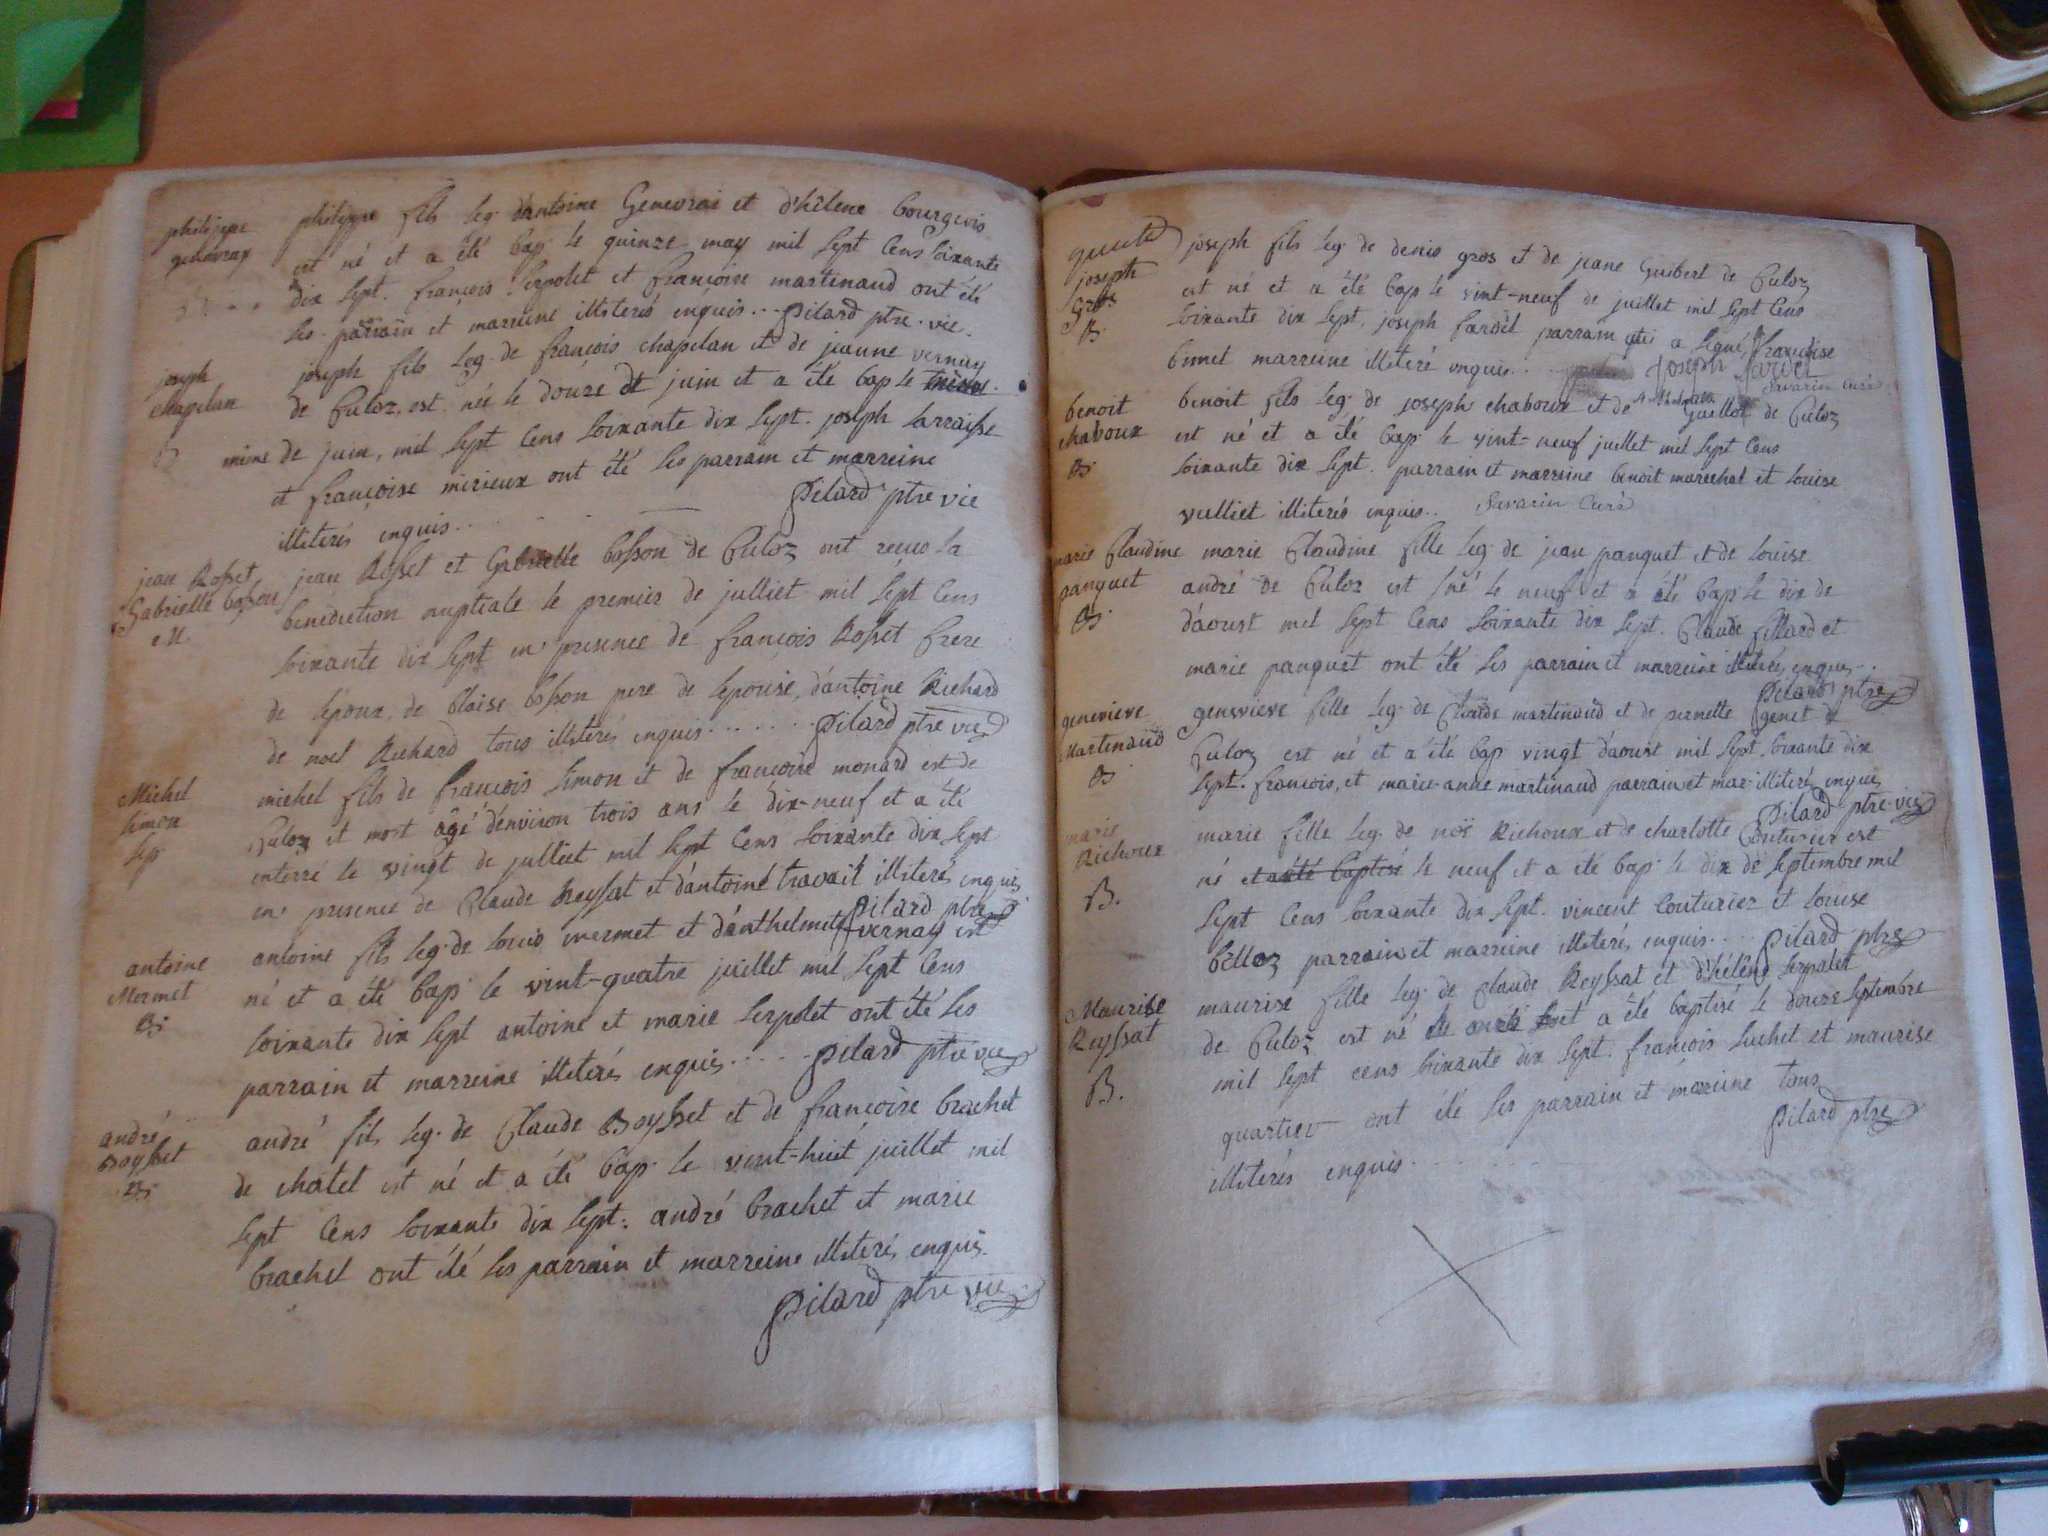 philippe
genevray
philippe fils leg. dantoine Genevrai et d'hélene bourgeois
est né et a été bap. le quinze may mil sept Cens soixante
dix sept. françois serpolet et françoise martinaud ont été
les parrain et marreine illiterés enquis... Pilard ptre. vic.
joseph
chapelan
joseph fils leg. de françois chapelan et de jeanne vernay
de Culoz, est née le douze de juin et a été bap le
mime de juin, mil sept Cens soixante dix sept. joseph sarraisse
et françoise mirieux ont été les parrain et marreine
illiterés enquis.. Pilard ptre vic
jean Rosset
Gabrielle bosson
M.
jean Rosset et Gabrielle bosson de Culoz ont recus la
benediction nuptiale le premier de julliet mil sept Cens
soixante dix sept en presence de françois Rosset frere
de lepoux, de blaise bosson pere de lepouse, d'antoine Richard
de noel Richard tous illiterés enquis....... Pilard ptre vic
Michel
simon
sep.
michel fils de françois simon et de françoise monard est de
Culoz et mort âgé d'environ trois ans le dix-neuf et a été
enterré le vingt de julliet mil sept Cens soixante dix sept
en presence de Claude Reyssat et d'antoine travail illiterés enquis
Pilard ptre
antoine
Mermet
B.
antoine fils leg. de louis mermet et d'anthelmette vernay est
né et a été bap. le vint-quatre juillet mil sept Cens
soixante dix sept antoine et marie serpolet ont été les
parrain et marreine illiterés enquis..... Pilard ptre vic
andré
Boysset
B.
andré fils leg. de Claude Boysset et de françoise brachet
de chatel est né et a été bap. le vint-huit juillet mil
sept Cens soixante dix sept. andré brachet et marie
brachet ont été les parrain et marreine illiterés enquis.
Pilard ptre vic
joseph
Gros
B.
joseph fils leg. de denis gros et de jeane Guibert de Culoz
est né et a été bap le vint-neuf de juillet mil sept Cens
soixante dix sept, joseph sardet parrain qui a signé, françoise
brunet marreine illiteré enquis... joseph Sardet
Savarin curé
benoit
chaboux
B.
benoit fils leg. de joseph chaboux et de Guillot de Culoz
est né et a été bap. le vint-neuf juillet mil sept Cens
soixante dix sept. parrain et marreine benoit marechal et louise
vulliet illiterés enquis.. Savarin Curé
marie Claudine
panquet
B.
marie Claudine fille leg. de jean panquet et de louise
andré de Culoz est né le neuf et a été bap. le dix de
d'aoust mil sept Cens soixante dix sept. Claude fillard et
marie panquet ont été les parrain et marreine illiterés enquis..
Pilard ptre
genevieve
Martinaud
B.
genevieve fille leg. de Claude martinaud et de pernette genet de
Culoz est né et a été bap vingt d'aoust mil sept soixante dix
sept. françois, et marie-anne martinaud parrain et mar. illiterés enquis
Pilard ptre. vic
marie
Richoux
B.
marie fille leg. de noë Richoux et de charlotte Couturier est
né et a été baptisé le neuf et a été bap. le dix de septembre mil
sept Cens soixante dix sept. vincent Couturier et louise
billoz parrain et marreine illiterés enquis.... Pilard ptre
Maurise
Reyssat
B.
maurise fille leg. de Claude Reyssat et d'hélêne serpolet
de Culoz est né le et a été baptisé le douze septembre
mil sept cens soixante dix sept. françois luchet et maurise
quartier ont été les parrain et marreine tous
illiterés enquis...... Pilard ptre